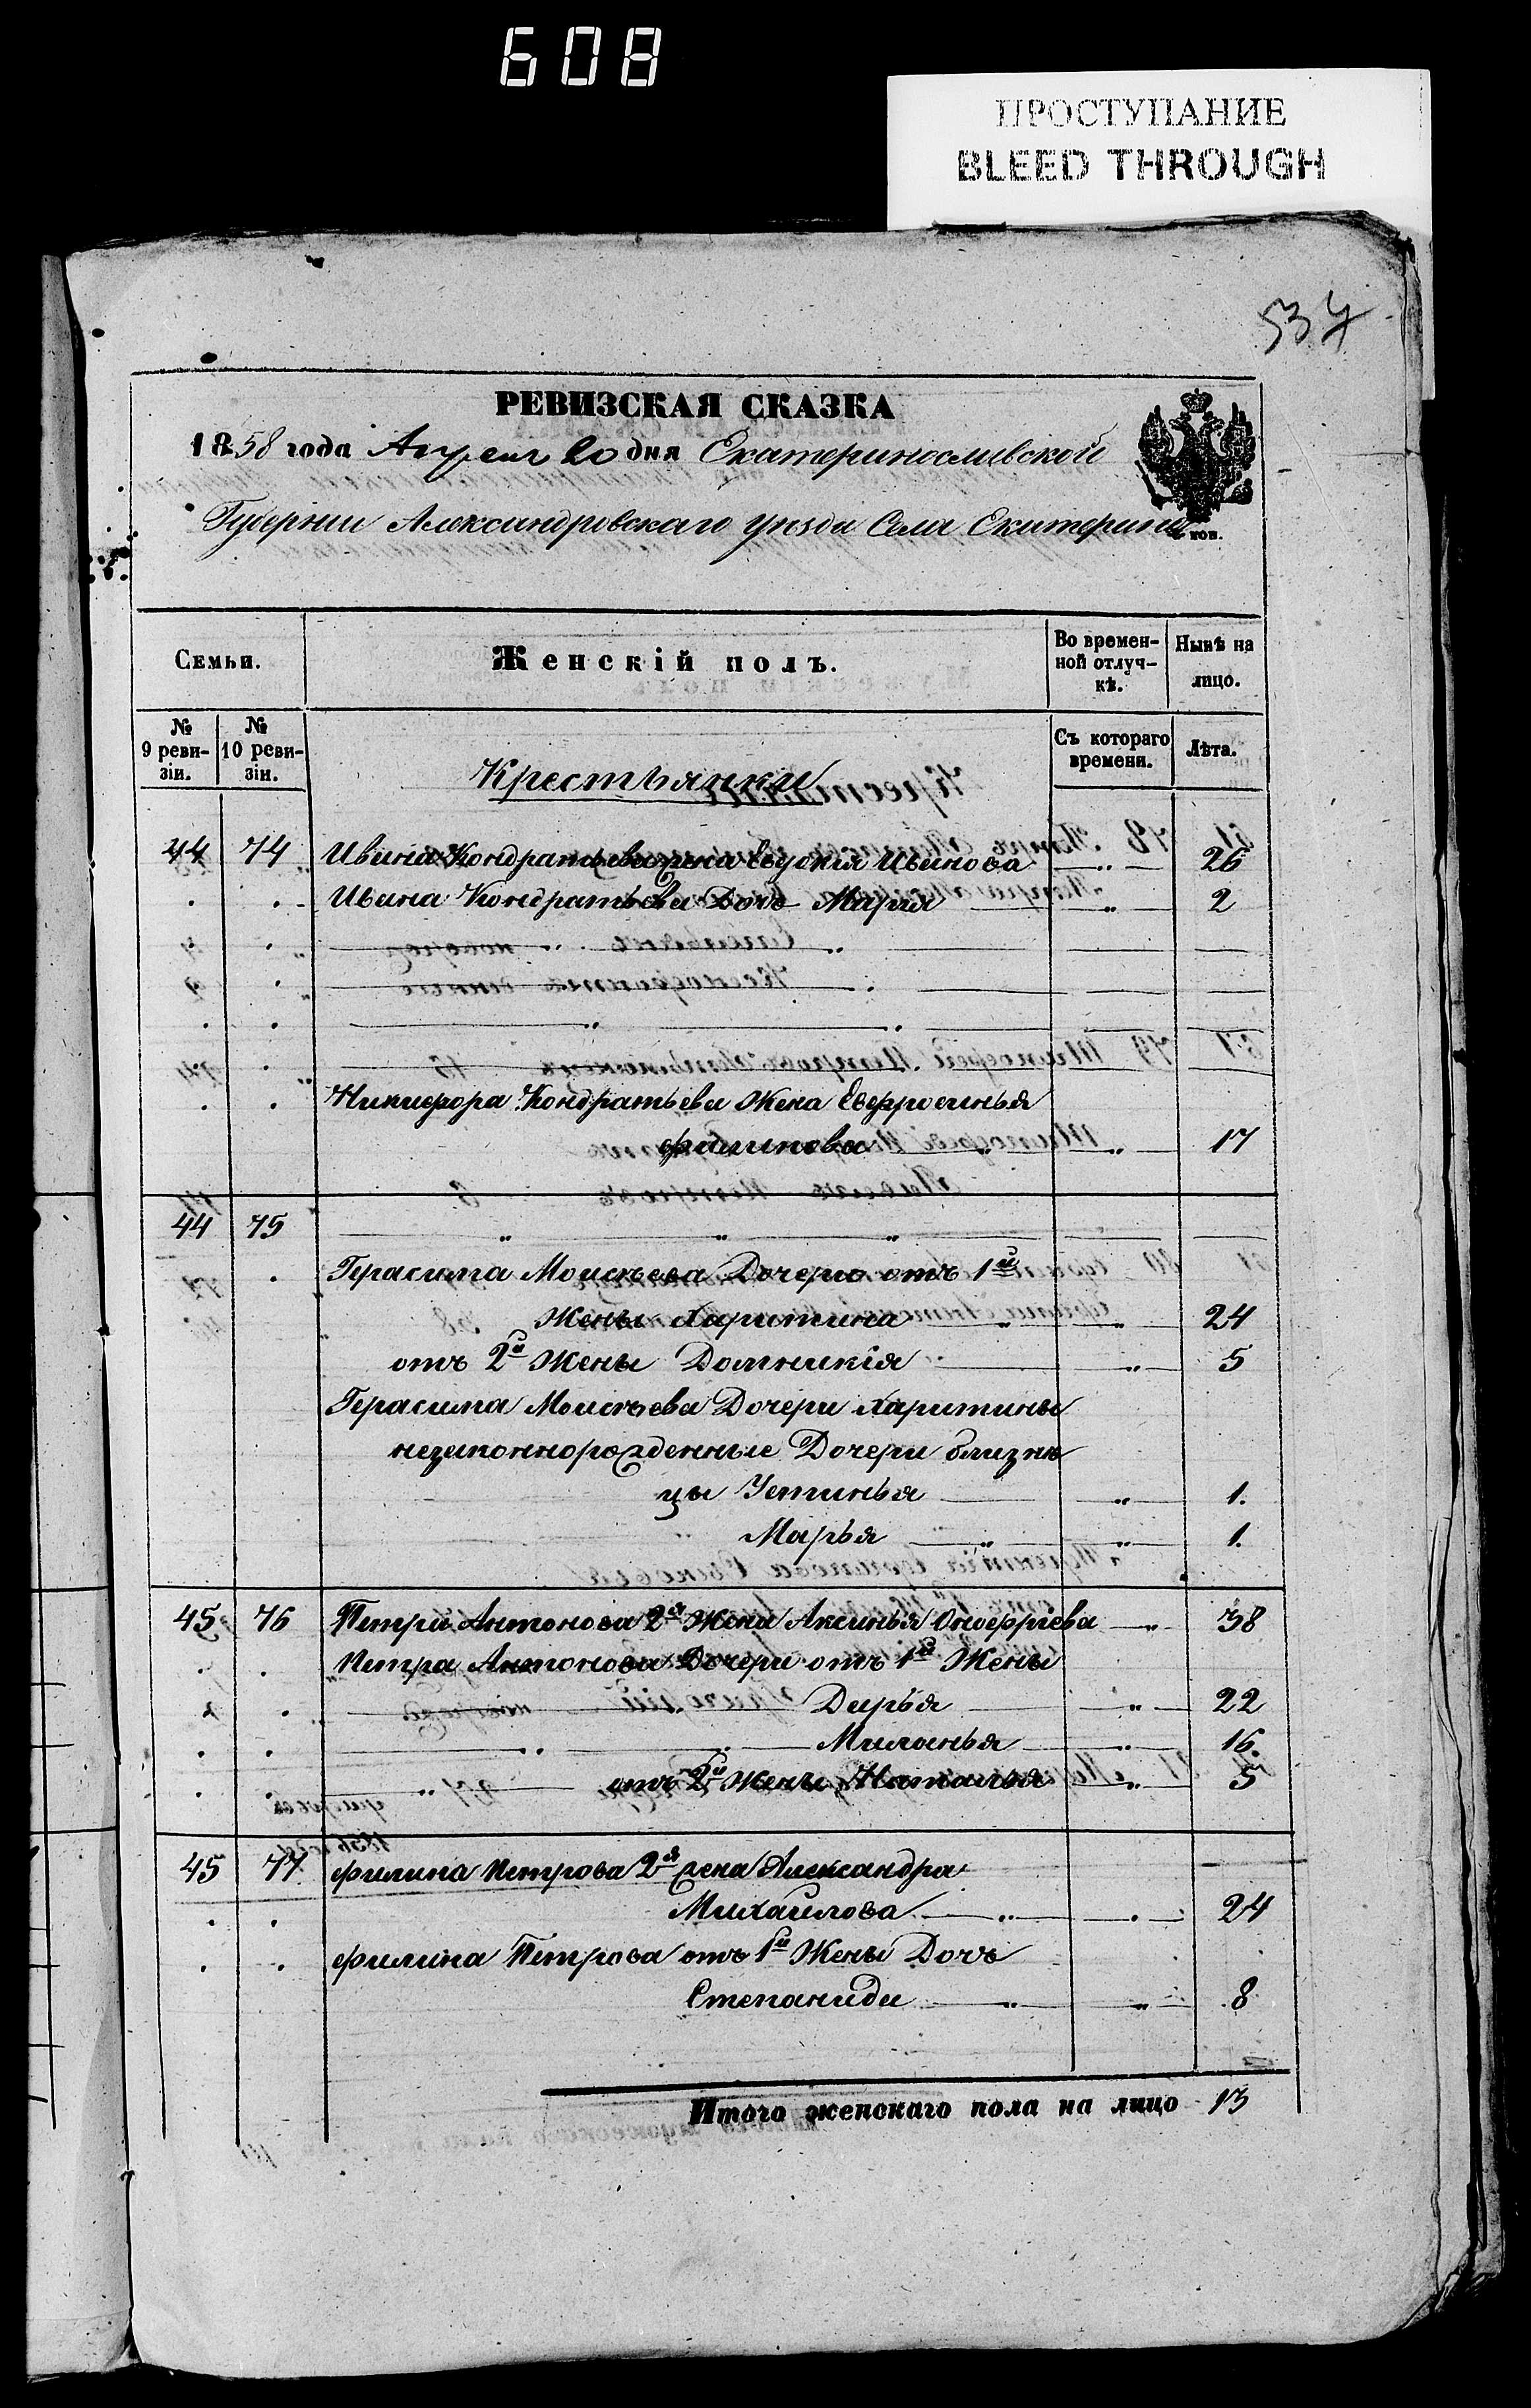 608
ПРОСТУПАНИЕ
BLEED THROUGH
537
РЕВИЗСКАЯ СКАЗКА
1858 года Апреля 20 дня Екатеринославской
Губернии Александровскаго уѣзда Села Екатерины
коп.
Семьи. Женскій полъ. Во времен- Нынѣ на
ной отлуч- лицо.
кѣ.
№ № Съ котораго Лѣта.
9 реви- 10 реви- времени.
зіи. зіи.
Крестьянки
44 74 Ивана Кондратьева жена Евдокія Иванова " 26
Ивана Кондратьева Дочь Марья " 2
Никифора Кондратьева Жена Евфросинья
Филипова " 17
44 75 " " "
Герасима Моисѣева Дочерю отъ 1й
Жены Харитина " " 24
отъ 2й Жены Домникія " 5
Герасима Моисѣева Дочери Харитины
незаконнорожденные Дочери близне
цы Устинья " 1.
Марья " " 1.
45 76 Петра Антонова 2я Жена Аксинья Оноефріева " 38
Петра Антонова Дочери отъ 1й Жены
" Дарья " 22
" " Миланья " 16
" отъ 2й Жены Наталья " 5
45 77 Филипа Петрова 2я жена Александра
Михайлова " " 24
Филипа Петрова отъ 1й Жены Дочь
Степанида " " 8
Итого женскаго пола на лицо 13